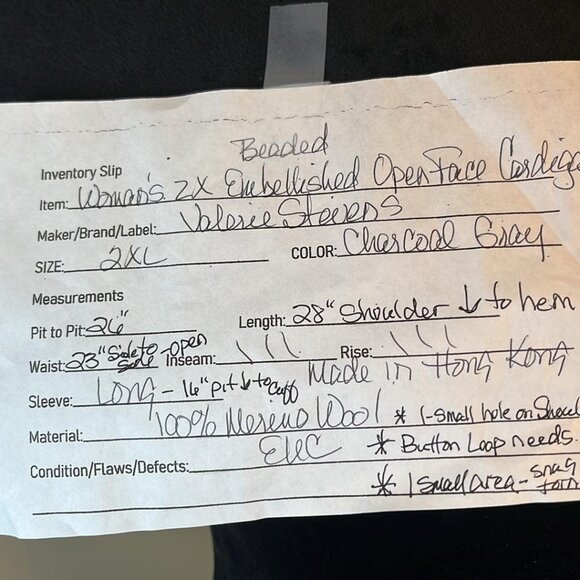 Beaded
Inventory Slip
Item: Woman's 2X Embellished Open Face Cardiga
Maker/Brand/Label: Valerie Stevens
SIZE: 2XL COLOR: Charcoal Gray
Measurements
Pit to Pit: 26" Length: 28" Shoulder ↓ to hem
Waist: 23" Side to Side - open Inseam: \ \ \ Rise: \ \ \
Sleeve: LONG - 16" pit ↓ to Cuff Made in Hong Kong
Material: 100% Mereno Wool * 1-Small hole on Shoul
Condition/Flaws/Defects: EUC * Button Loop needs
* 1 Small area - snag
torn